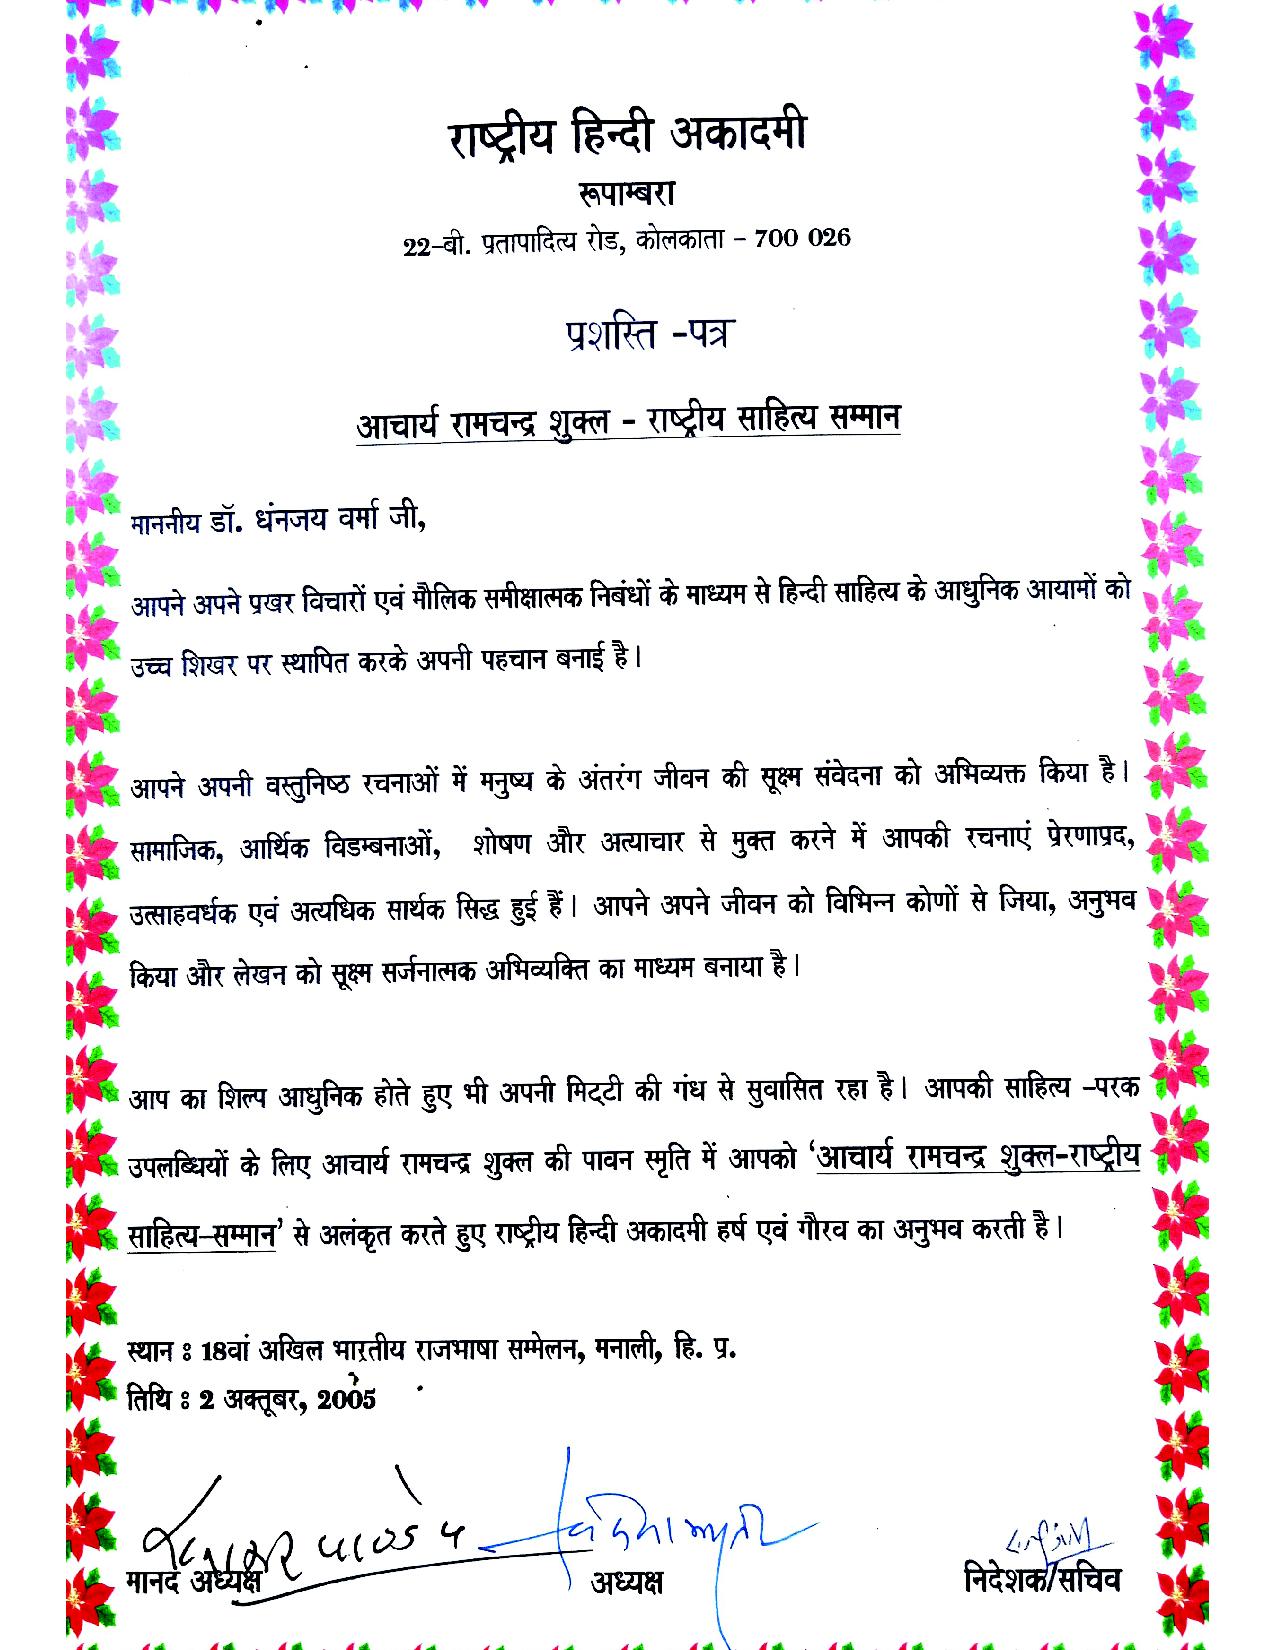 राष्ट्रीय हिन्दी अकादमी
रूपाम्बरा
22-बी. प्रतापादित्य रोड, कोलकाता - 700 026
प्रशस्ति -पत्र
आचार्य रामचन्द्र शुक्ल - राष्ट्रीय साहित्य सम्मान
माननीय डॉ. धंनजय वर्मा जी,
आपने अपने प्रखर विचारों एवं मौलिक समीक्षात्मक निबंधों के माध्यम से हिन्दी साहित्य के आधुनिक आयामों को
उच्च शिखर पर स्थापित करके अपनी पहचान बनाई है।
आपने अपनी वस्तुनिष्ठ रचनाओं में मनुष्य के अंतरंग जीवन की सूक्ष्म संवेदना को अभिव्यक्त किया है।
सामाजिक, आर्थिक विडम्बनाओं, शोषण और अत्याचार से मुक्त करने में आपकी रचनाएं प्रेरणाप्रद,
उत्साहवर्धक एवं अत्यधिक सार्थक सिद्ध हुई हैं। आपने अपने जीवन को विभिन्न कोणों से जिया, अनुभव
किया और लेखन को सूक्ष्म सर्जनात्मक अभिव्यक्ति का माध्यम बनाया है।
आप का शिल्प आधुनिक होते हुए भी अपनी मिट्टी की गंध से सुवासित रहा है। आपकी साहित्य -परक
उपलब्धियों के लिए आचार्य रामचन्द्र शुक्ल की पावन स्मृति में आपको ‘आचार्य रामचन्द्र शुक्ल-राष्ट्रीय
साहित्य-सम्मान’ से अलंकृत करते हुए राष्ट्रीय हिन्दी अकादमी हर्ष एवं गौरव का अनुभव करती है।
स्थान : 18वां अखिल भारतीय राजभाषा सम्मेलन, मनाली, हि. प्र.
तिथि : 2 अक्तूबर, 2005
मानद अध्यक्ष अध्यक्ष निदेशक/सचिव